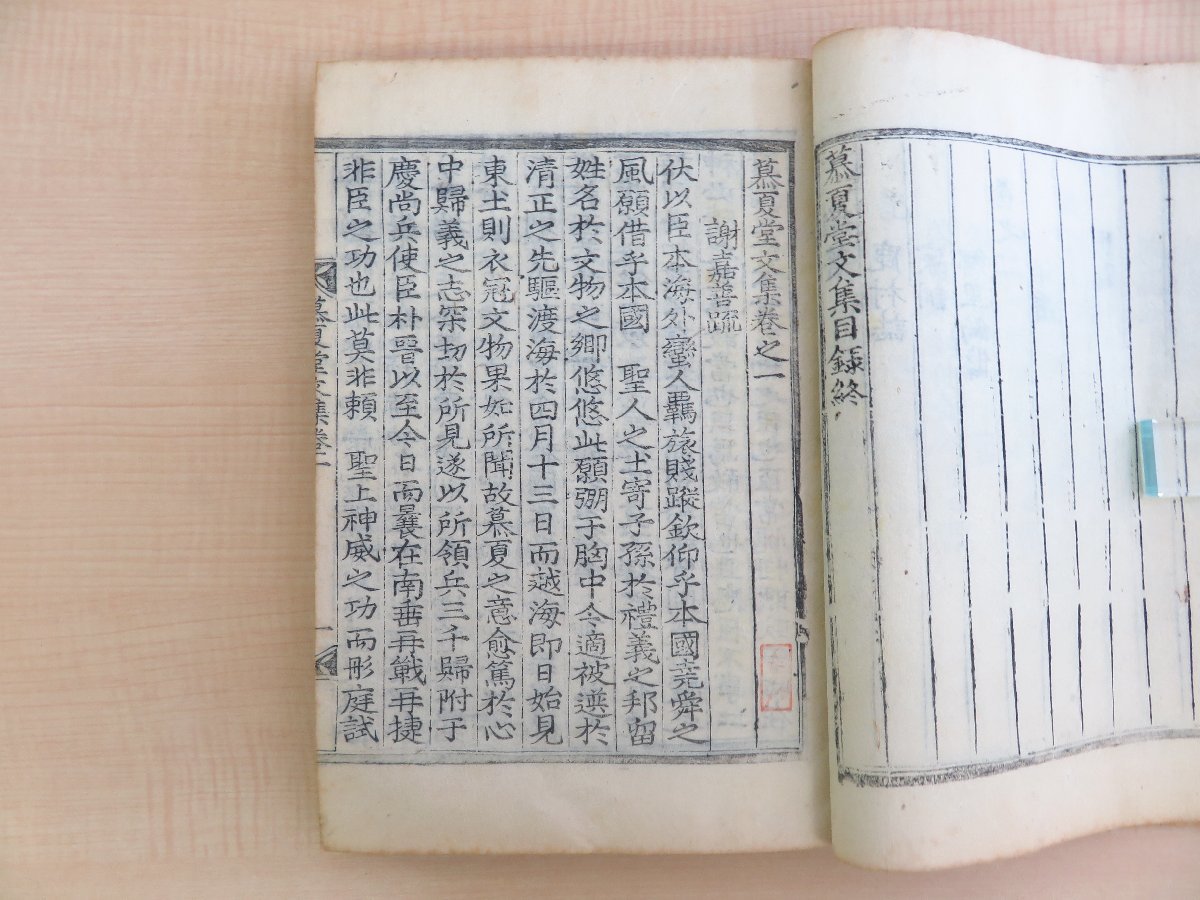 慕夏堂文集目錄終
慕夏堂文集卷之一
謝嘉善疏
伏以臣本海外蠻人羈旅賤蹤欽仰乎本國堯舜之
風願借乎本國 聖人之土寄子孫於禮義之邦留
姓名於文物之鄉悠悠此願弸于胸中今適被選於
清正之先驅渡海於四月十三日而越海即日始見
東土則衣冠文物果如所聞故慕夏之意愈篤於心
中歸義之志深切於所見遂以所領兵三千歸附于
慶尚兵使臣朴晉以至今日而曩在南垂再戰再捷
非臣之功也此莫非賴 聖上神威之功而彤庭試
慕夏堂文集卷一 一